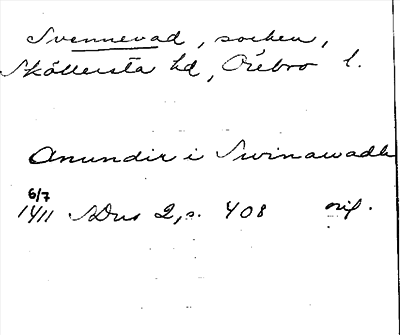 Svennevad, socken,
Sköllersta hd, Örebro l.
Anundir i Swinawadh
6/7
1411 SDns 2, s. 408 orig.